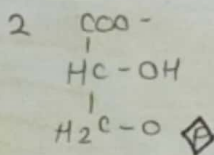 2 COO -
HC - OH
H₂C - O P